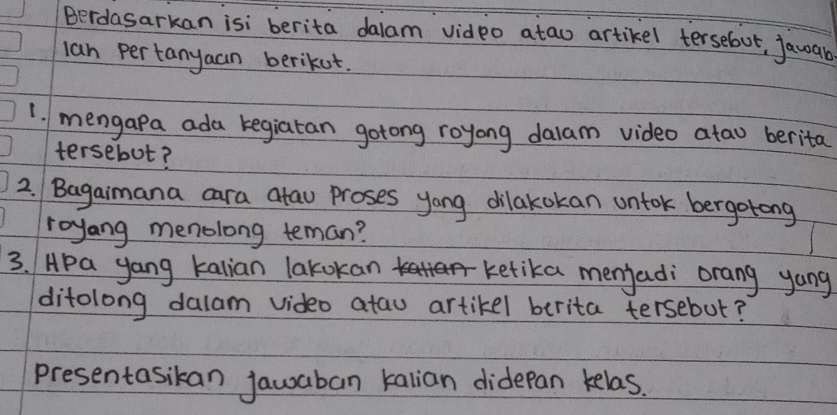 Berdasarkan isi berita dalam video atau artikel tersebut, jawab
lah pertanyaan berikut.
1. mengapa ada kegiatan gotong royong dalam video atau berita
tersebut?
2. Bagaimana cara atau proses yang dilakukan untuk bergotong
royang menolong teman?
3. Apa yang kalian lakukan kalian ketika menjadi orang yang
ditolong dalam video atau artikel berita tersebut?
presentasikan jawaban kalian didepan kelas.